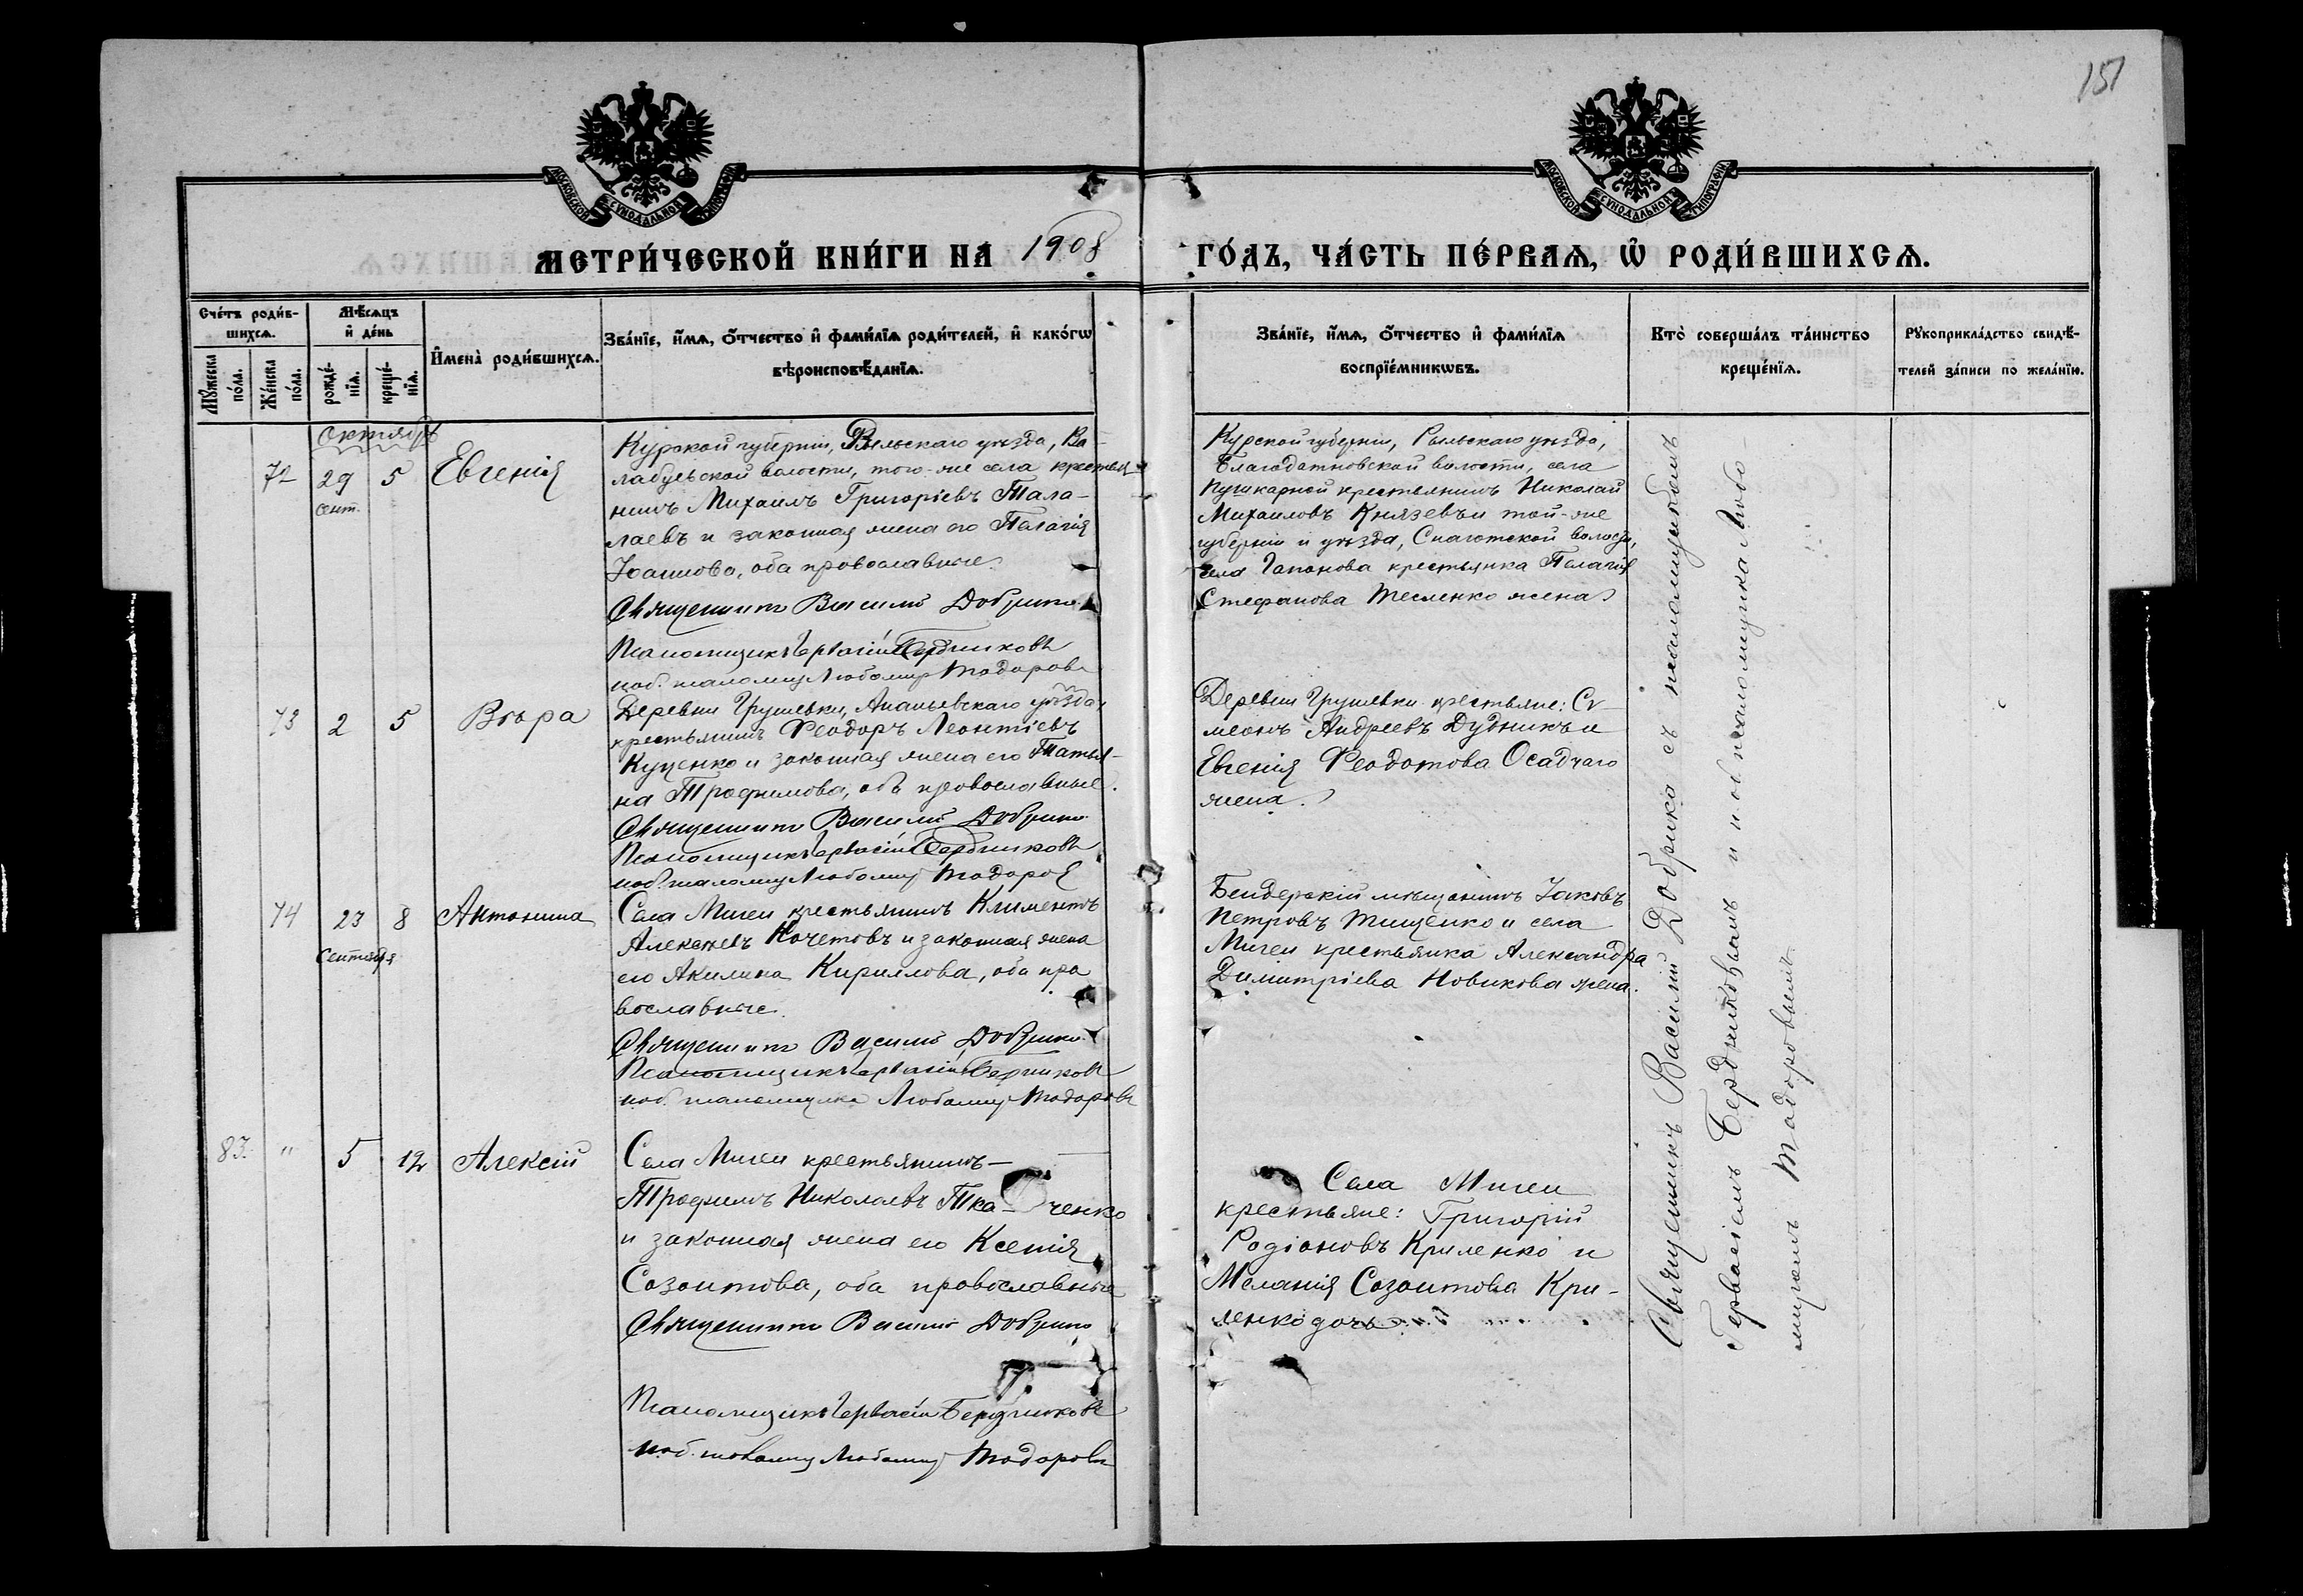 151
МОСКОВСКОЙ СУНОДАЛЬНОЙ ТИПОГРАФІИ
МОСКОВСКОЙ СУНОДАЛЬНОЙ ТИПОГРАФІИ
МЕТРИ́ЧЕСКОЙ КНИ́ГИ НА 1908 ГО́ДЪ, ЧА́СТЬ ПЕ́РВАѦ, Ѽ РОДИ́ВШИХСѦ.
Сче́тъ роди́в-
шихсѧ.
Мꙋ́жеска по́ла.
Же́нска по́ла.
Мѣ́сѧцъ
и҆ де́нь
рожде́-
нїѧ.
креще́-
нїѧ.
И҆мена̀ роди́вшихсѧ.
Зва́нїе, и҆́мѧ, ѻ҆́тчество и҆ фами́лїѧ роди́телей, и҆ како́гѡ
вѣроисповѣ́данїѧ.
Зва́нїе, и҆́мѧ, ѻ҆́тчество и҆ фами́лїѧ
воспрїе́мникѡвъ.
Кто̀ соверша́лъ та́инство
креще́нїѧ.
Рꙋкоприкла́дство свидѣ́-
телей за́писи по жела́нїю.
октябрь
72
29
сент.
5
Евгенія
Курской губерніи, Рыльскаго уѣзда,
волости, того-же села крестья-
нинъ Михаилъ Григоріевъ Тала-
лаевъ и законная жена его Пелагія
Іоаннова, оба православные.
Священникъ Василій Добрика
Псаломщикъ Гервасій Бердниковъ
и. об. псаломщ. Любомир Тодоровъ
Курской губерніи, Рыльскаго уѣзда,
Благодатновской волости, села
Пушкарной крестьянинъ Николай
Михаиловъ Князевъ и той-же
губерніи и уѣзда, Снагостской волости,
села Гапонова крестьянка Пелагія
Стефанова Тесленко жена
73
2
5
Вѣра
Деревни Грушевки, Ананьевскаго уѣзда,
крестьянинъ Феодоръ Леонтіевъ
Куценко и законная жена его Татья-
на Трофимова, оба православные.
Священникъ Василій Добрика
Псаломщикъ Гервасій Бердниковъ
и. об. псаломщ Любомир Тодоров
Деревни Грушевки крестьяне: Си-
меонъ Андреевъ Дудникъ и
Евгенія Феодотова Осадчаго
жена.
74
23
сентября
8
Антонина
Села Мигеи крестьянинъ Климентъ
Алексѣевъ Кочетовъ и законная жена
его Акилина Кириллова, оба пра
вославные.
Священникъ Василій Добрика
Псаломщикъ Гервасій Бердниковъ
и. об. псаломщика Любомир Тодоровъ
Бендерскій мѣщанинъ Іаковъ
Петровъ Тищенко и села
Мигеи крестьянка Александра
Димитріева Новикова жена.
83.
"
5
12
Алексій
Села Мигеи крестьянинъ—
Трофимъ Николаевъ Тка-ченко
и законная жена его Ксенія
Созонтова, оба православные
Священникъ Василій Добрика
Псаломщикъ Гервасій Бердниковъ
и. об. псаломщ Любомир Тодоровъ
Села Мигеи
крестьяне: Григорій
Родіоновъ Криленко и
Меланія Созонтова Кри-
ленко дочь
Священникъ Василій Добрика съ псаломщикомъ
Гервасіемъ Бердниковымъ и и. об. псаломщика Любо-
миромъ Тодоровымъ